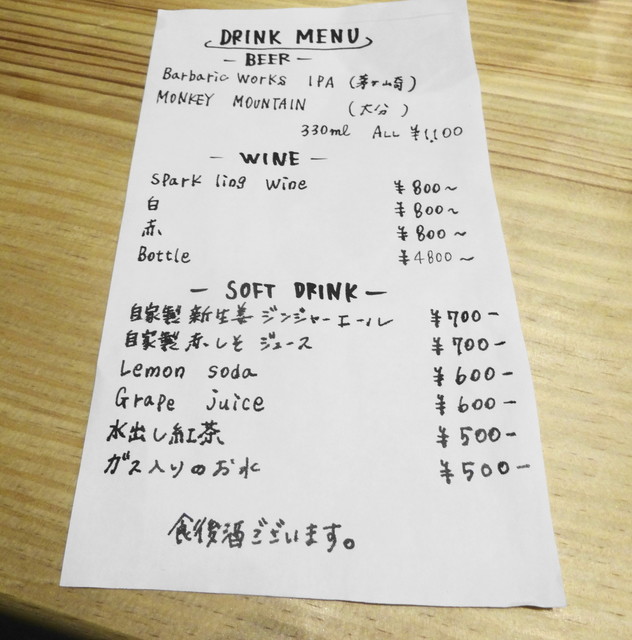 DRINK MENU
- BEER -
Barbaric Works IPA (茅ヶ崎)
MONKEY MOUNTAIN (大分)
330ml ALL ¥1,100
- WINE -
Sparkling Wine ¥800~
白 ¥800~
赤 ¥800~
Bottle ¥4800~
- SOFT DRINK -
自家製 新生姜 ジンジャーエール ¥700-
自家製 赤しそ ジュース ¥700-
Lemon soda ¥600-
Grape juice ¥600-
水出し紅茶 ¥500-
ガス入りのお水 ¥500-
食後酒ございます。